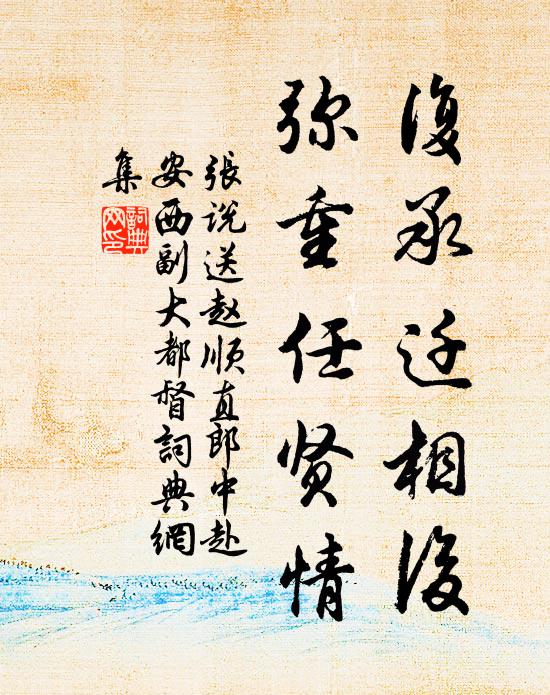 復承迁相後
弥重任贤情
張说送赵顺直郎中赴
安西副大都督詞典網
集
詞典
网印